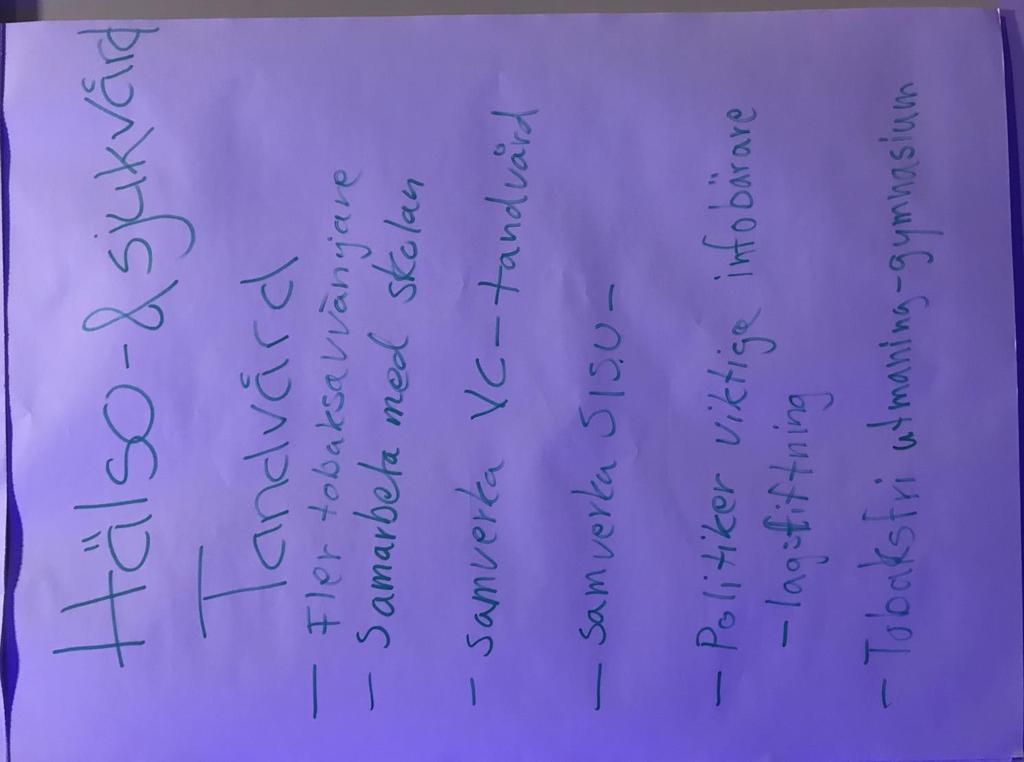 Hälso-&sjukvård
Tandvård
- Fler tobaksavvänjare
- Samarbeta med skolan
- samverka VC-tandvård
- samverka SISU-
- Politiker viktiga infobärare
- lagstiftning
- Tobaksfri utmaning-gymnasium